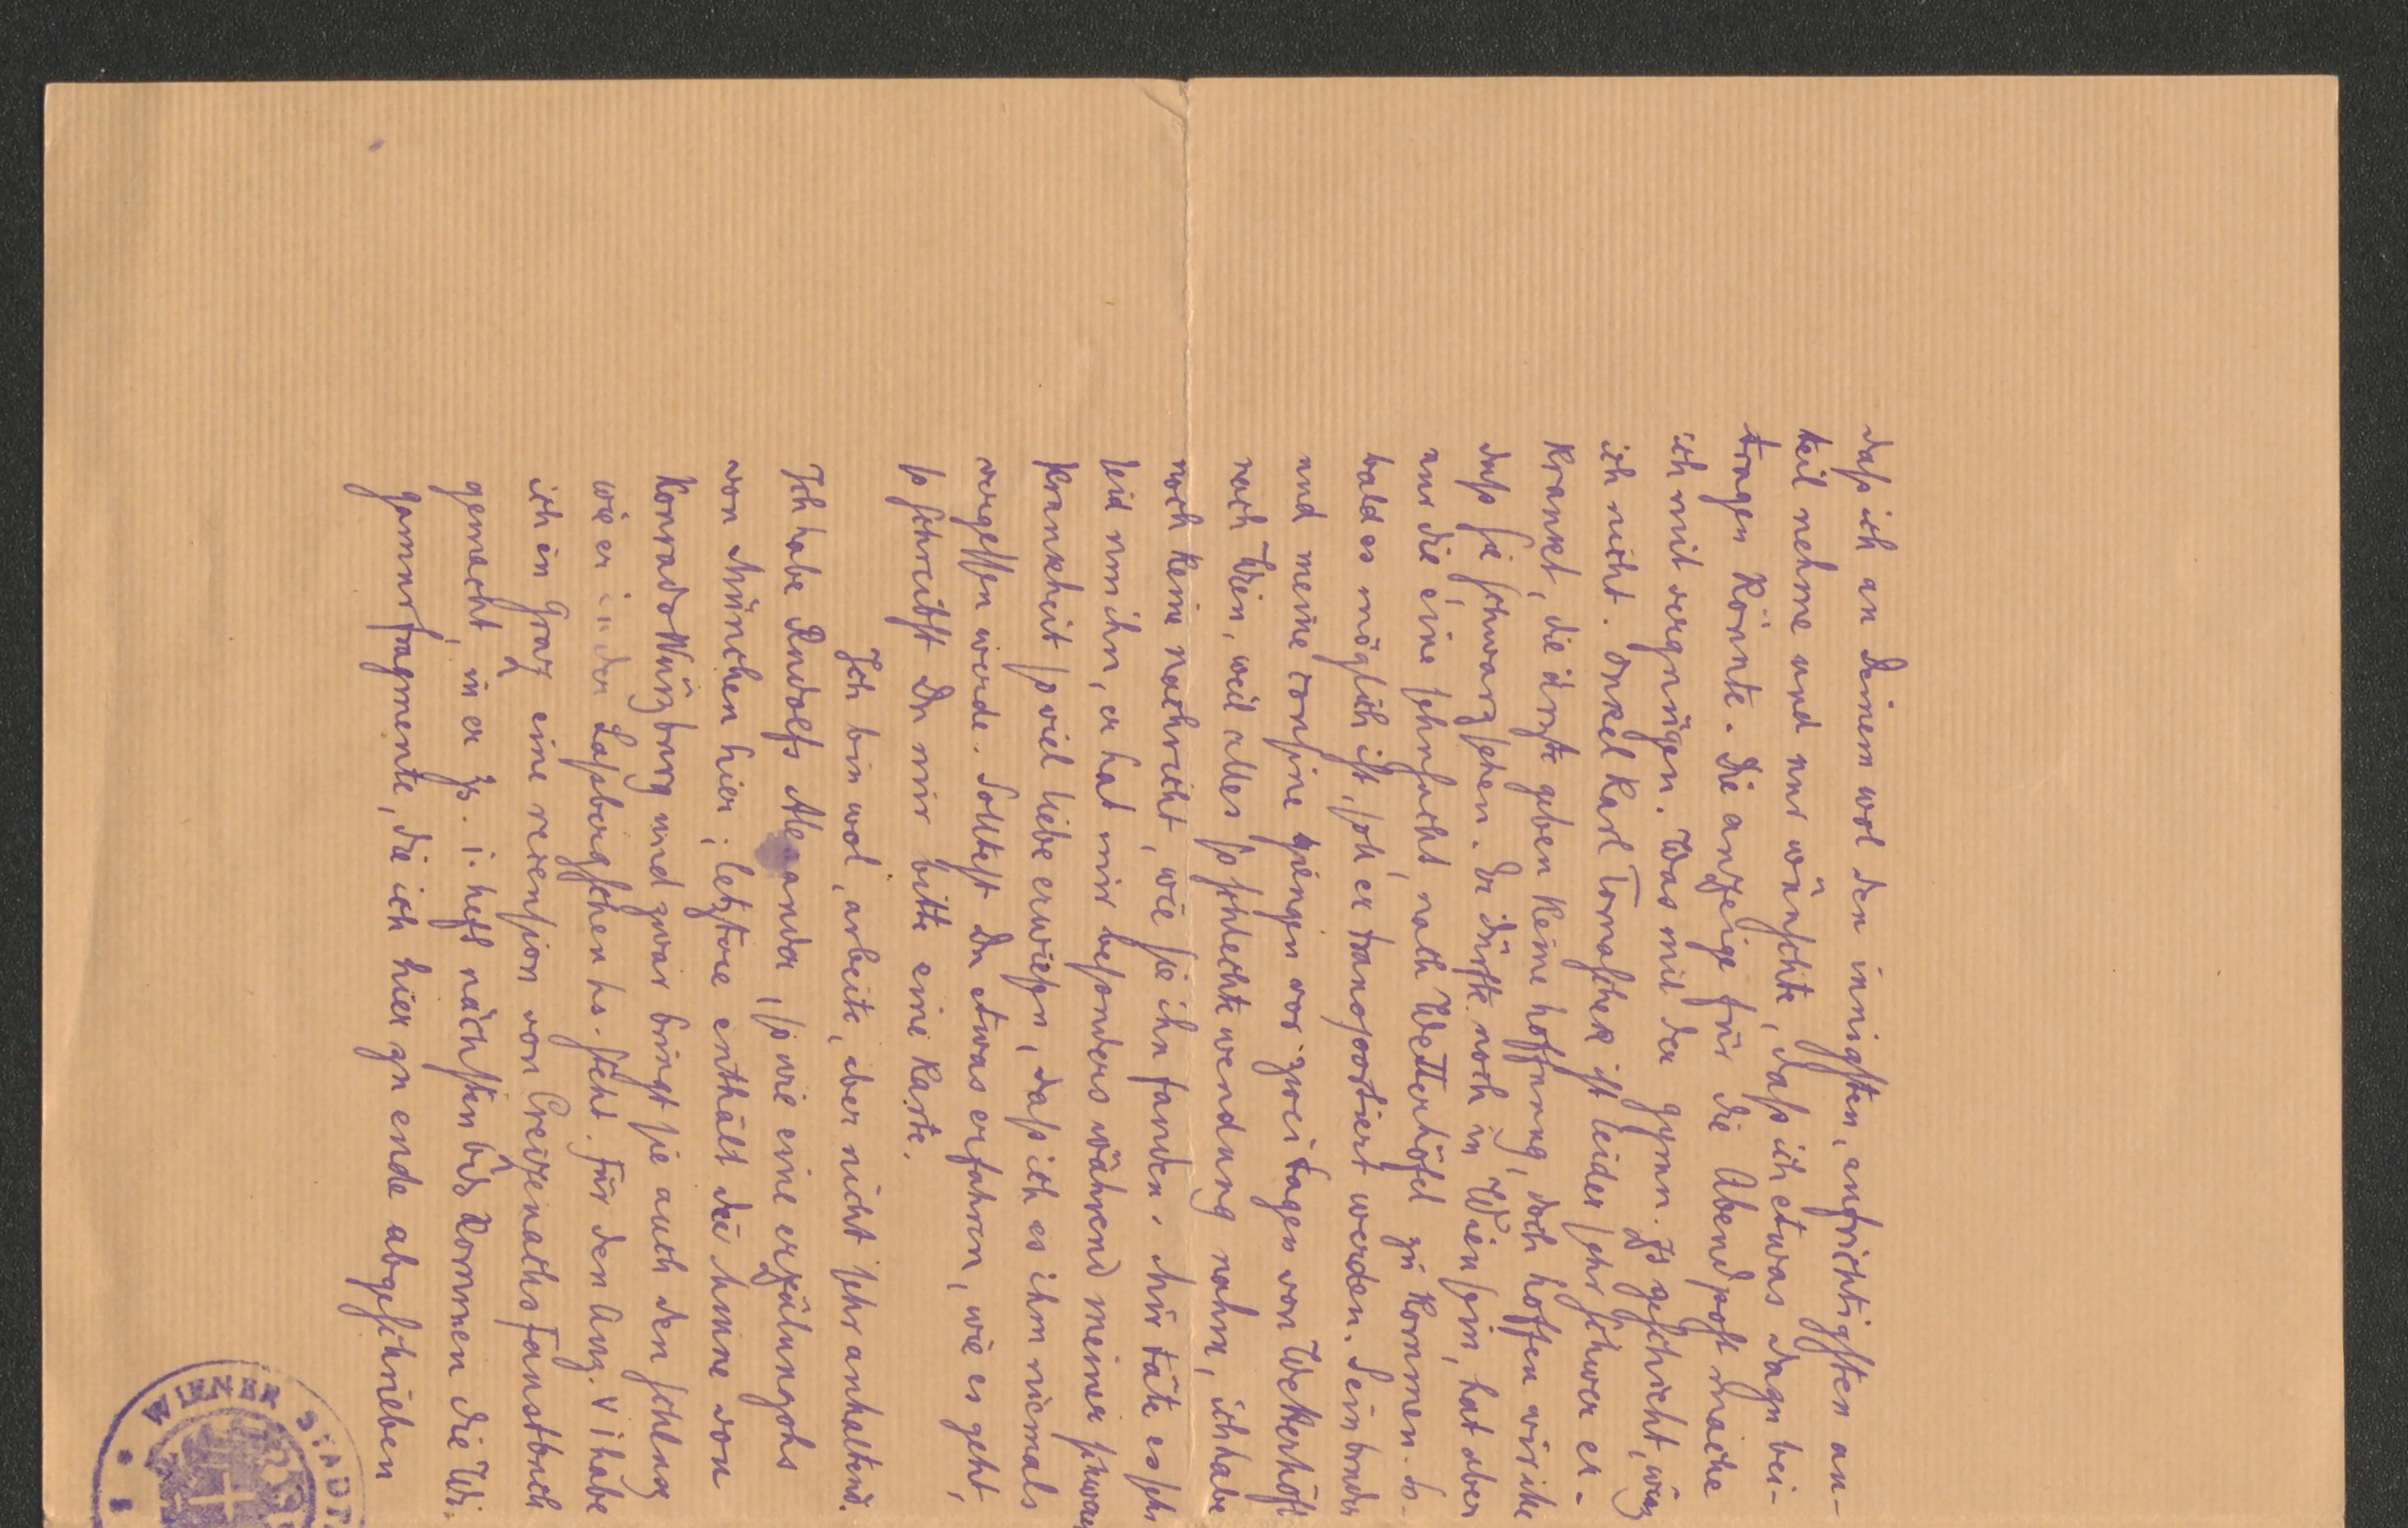 daſs ich an Deinem wol den innigſten, aufrichtigſten an-
teil nehme und nur wünſchte, daſs ich etwas dazu bei-
tragen könnte. Die anzeige für die Abendpoſt mache
ich mit vergnügen. Was mit der gymn. Zs geſchieht, weiſs
ich nicht. Onkel Karl Tomaſchek iſt leider ſehr ſchwer er-
krankt, die ärzte geben keine hoffnung, doch hoffen wir
daſs ſie ſchwarz ſehen. Er dürfte noch in Wien ſein, hat aber
nur die eine ſehnſucht, nach Wetterhöfel zu kommen. So-
bald es möglich iſt, ſoll er transportiert werden. Sein bruder
und meine couſine giengen vor zwei tagen von Wekerhöfl
nach Wien, weil alles ſo ſchlechte wendung nahm, ich habe
noch keine nachricht, wie ſie ihn fanden. Mir täte es ſehr
leid um ihn, er hat mir beſonders während meiner ſchweren
krankheit ſo viel liebe erwieſen, daſs ich es ihm niemals
vergeſſen werde. Sollteſt Du etwas erfahren, wie es geht,
ſo ſchreibſt Du mir bitte eine karte.
Ich bin wol, arbeite, aber nicht ſehr anhaltend.
Ich habe Rudolfs Alexander, ſo wie eine erzälungshs
von München hier; letztere enthält die hunne von
Konrad v Würzburg und zwar bringt ſie auch den ſchluſs
wie er in der Laſsbergſchen hs. ſteht. Für den Anz. V i habe
ich in Graz eine recenſion von Creizenachs Fauſtbuch
gemacht, in er Zs. i. heft nächſten bds kommen die Wi-
gamurfragmente, die ich hier zu ende abgeſchrieben
WIENER STADT